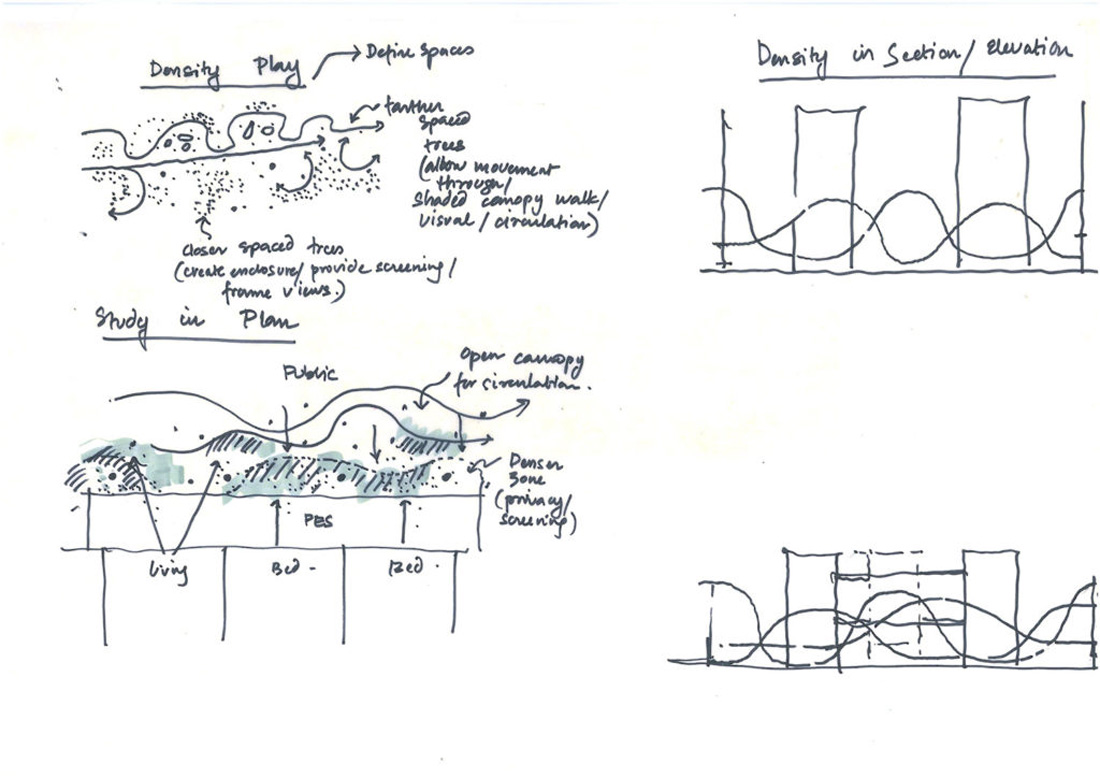 Density Play
Define Spaces
farther
spaced
trees
(allow movement
through/
shaded canopy walk/
visual / circulation)
closer spaced trees
(create enclosure/ provide screening/
frame views.)
Study in Plan
Public
Open canopy
for circulation.
Denser
Zone
(privacy/
screening)
PES
Living
Bed -
Bed .
Density in Section/ Elevation